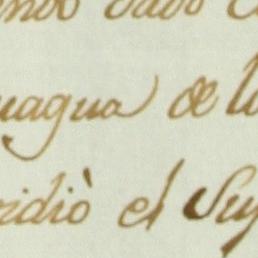 dado
uagua de lo
ridiò el Suy